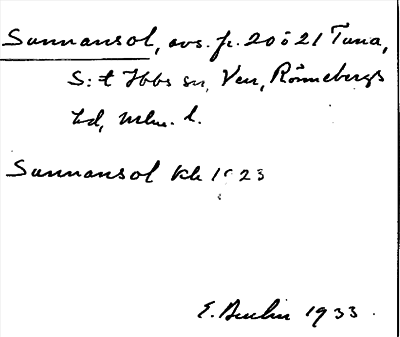 Sunnansol, avs. fr. 20 o 21 Tuna,
S:t Ibbs sn, Ven, Rönnebergs
hd, Mlm. l.
Sunnansol kk 1923
E. 1933